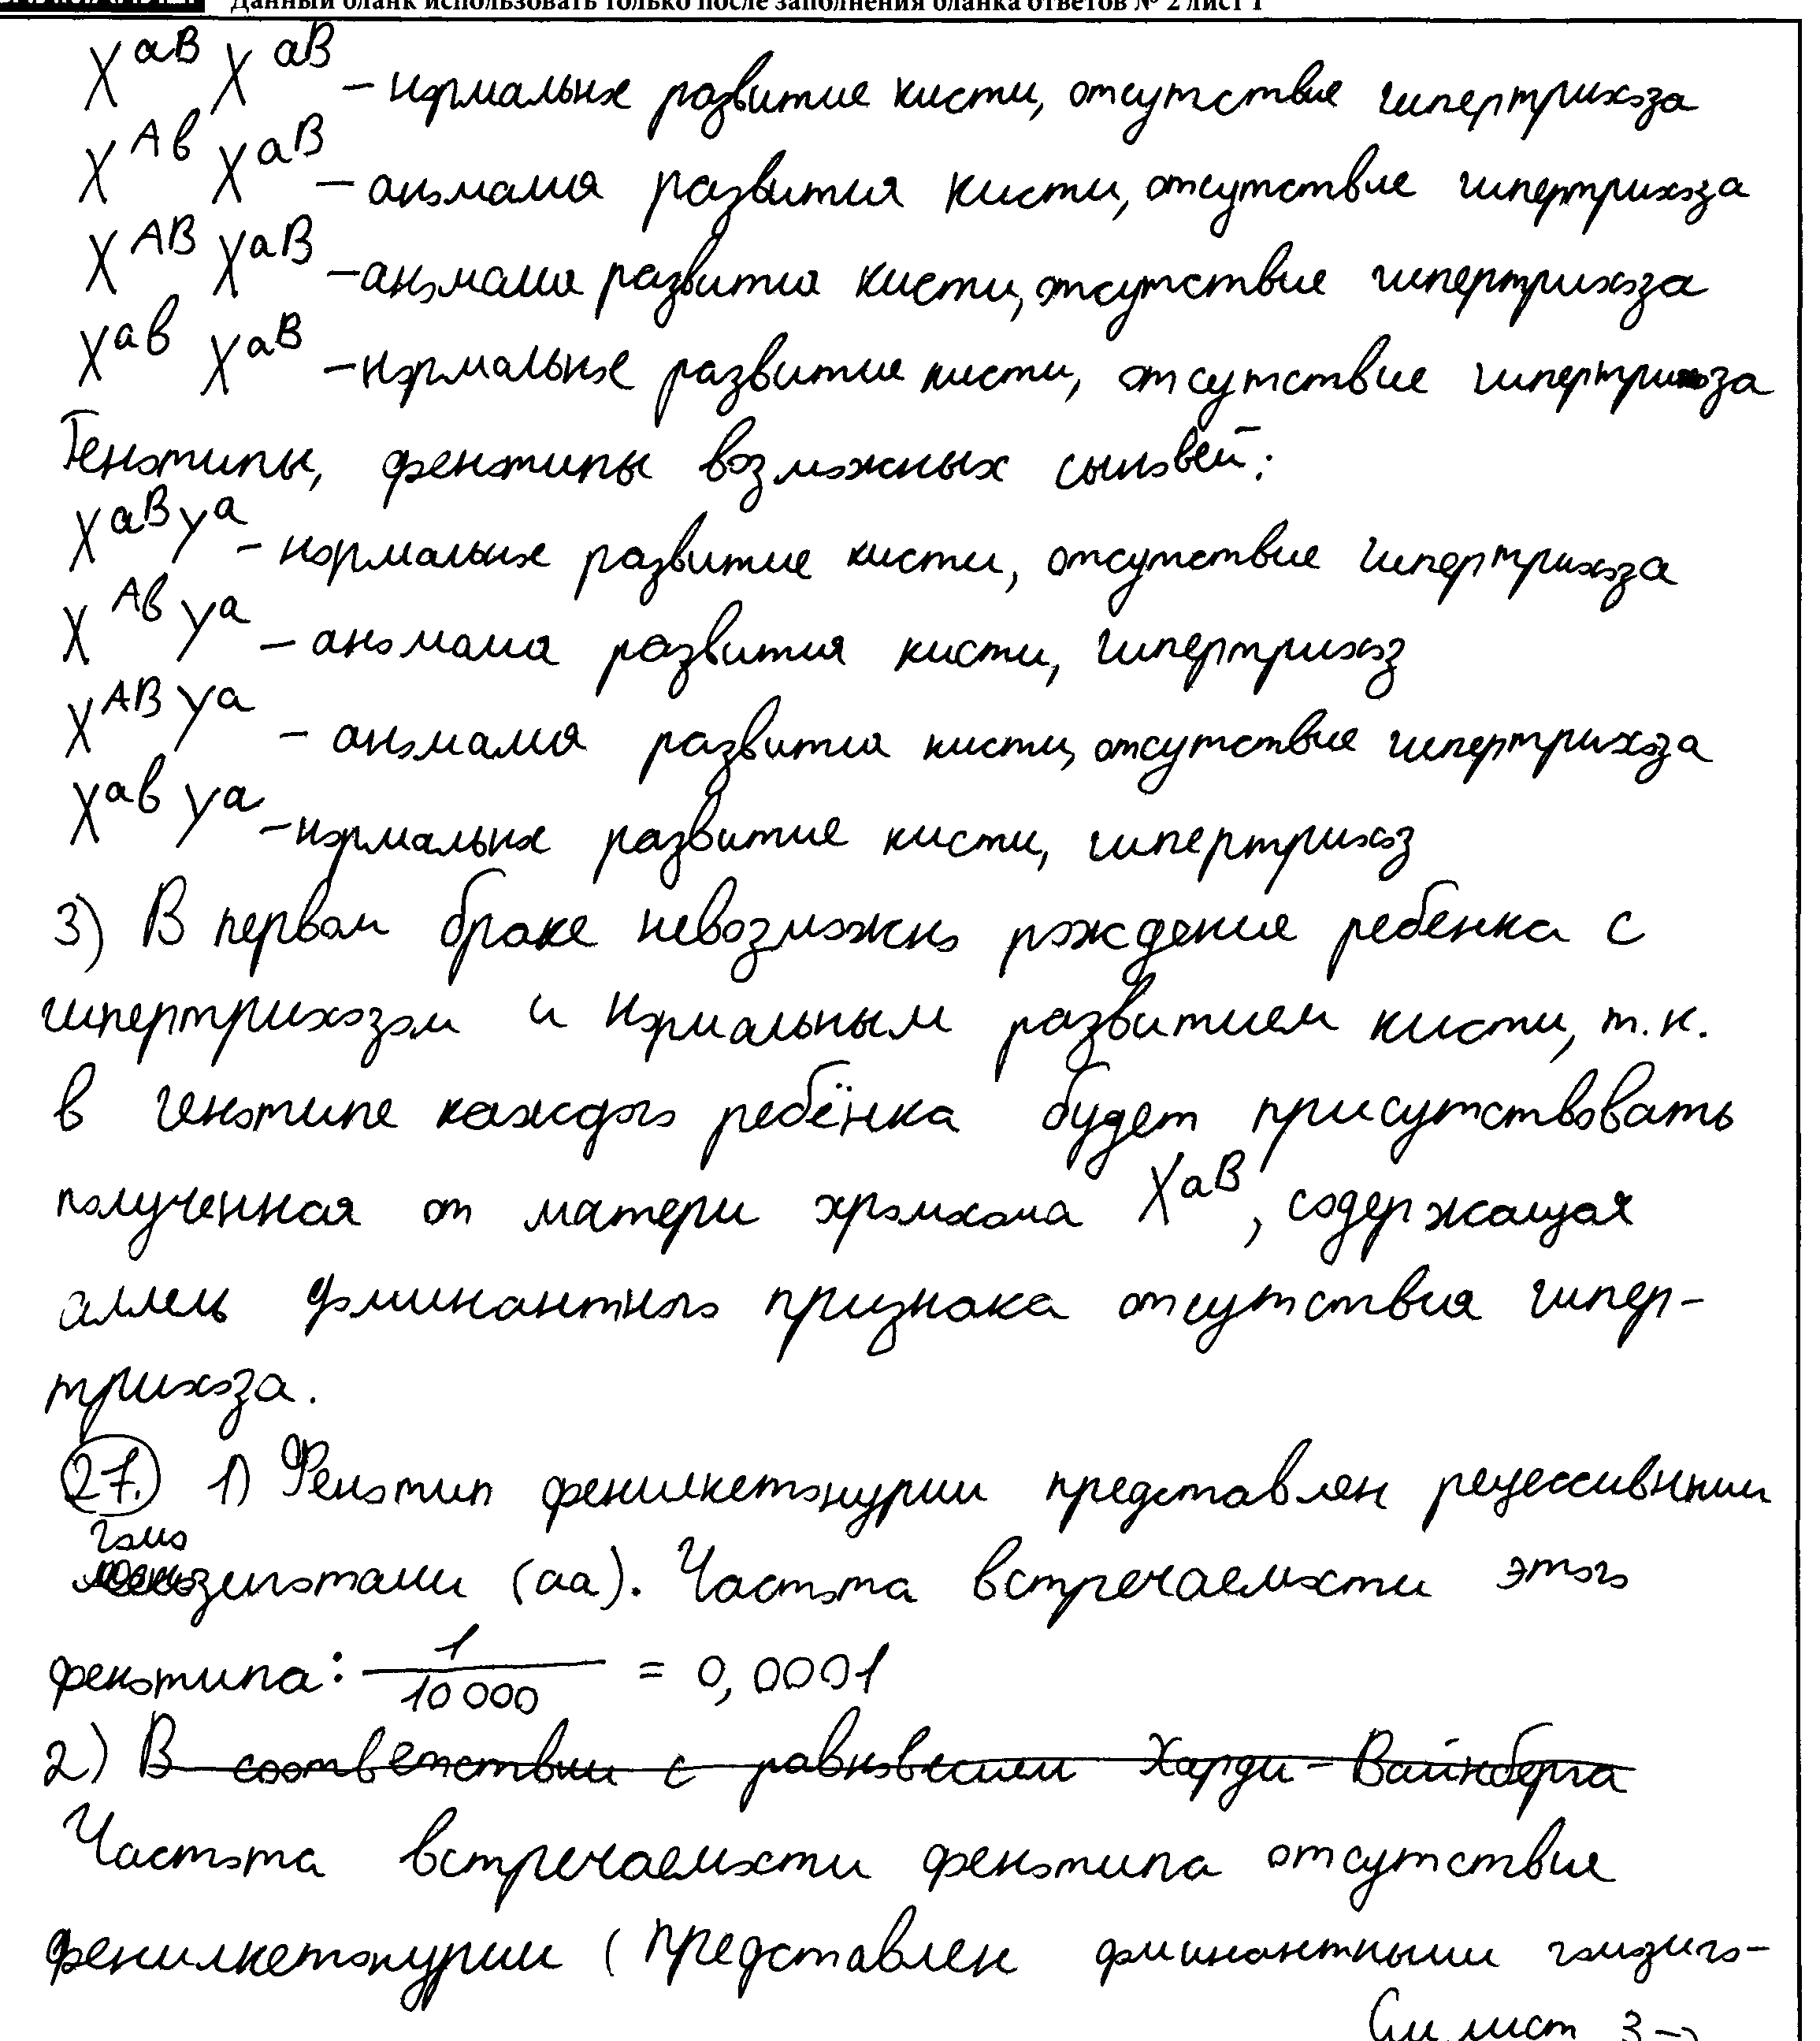 Данный бланк использовать только после заполнения бланка ответов № 2 лист 1
X^aB X^aB – нормальное развитие кисти, отсутствие гипертрихоза
X^Aв X^aB – аномалия развития кисти, отсутствие гипертрихоза
X^AB X^aB – аномалия развития кисти, отсутствие гипертрихоза
X^aв X^aB – нормальное развитие кисти, отсутствие гипертрихоза
Генотипы, фенотипы возможных сыновей:
X^aB Y^a – нормальное развитие кисти, отсутствие гипертрихоза
X^Aв Y^a – аномалия развития кисти, гипертрихоз
X^AB Y^a – аномалия развития кисти, отсутствие гипертрихоза
X^aв Y^a – нормальное развитие кисти, гипертрихоз
3) В первом браке невозможно рождение ребенка с
гипертрихозом и нормальным развитием кисти, т.к.
в генотипе каждого ребёнка будет присутствовать
полученная от матери хромосома X^aB, содержащая
аллель доминантного признака отсутствия гипер-
трихоза.
27. 1) Фенотип фенилкетонурии представлен рецессивными
гомо
зиготами (аа). Частота встречаемости этого
фенотипа: 1/10 000 = 0,0001
2) В соответствии с равновесием Харди – Вайнберга
Частота встречаемости фенотипа отсутствие
фенилкетонурии (представлен доминантными гомозиго-
См. лист 3 →